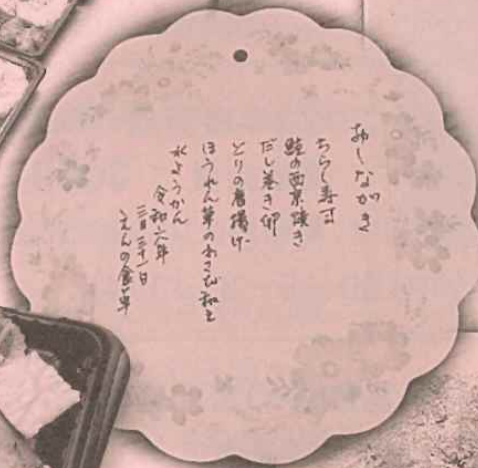 おしながき
ちらし寿司
鮭の西京焼き
だし巻き卵
とりの唐揚げ
ほうれん草のわさび和え
水ようかん
令和六年
三月三十一日
えんの食卓